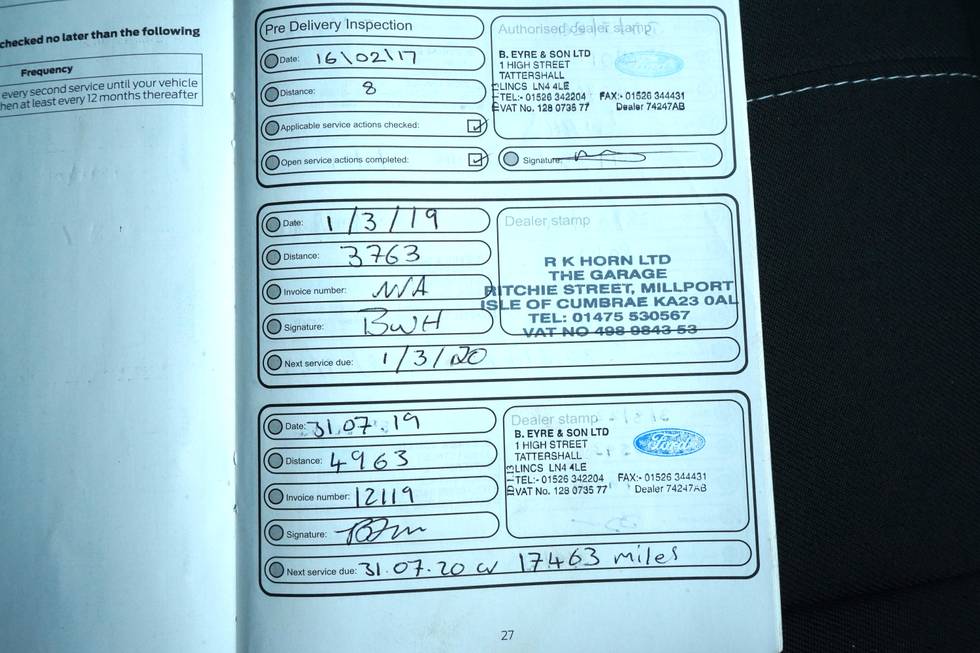 checked no later than the following
Frequency
every second service until your vehicle
hen at least every 12 months thereafter
Pre Delivery Inspection
Date: 16\02\17
Distance: 8
Applicable service actions checked:
Open service actions completed:
Authorised dealer stamp
B. EYRE & SON LTD
1 HIGH STREET
TATTERSHALL
LINCS LN4 4LE
TEL:- 01526 342204 FAX:- 01526 344431
VAT No. 128 0735 77 Dealer 74247AB
Signature:
Date: 1/3/19
Distance: 3763
Invoice number: N/A
Signature: BWH
Next service due: 1/3/20
Dealer stamp
R K HORN LTD
THE GARAGE
RITCHIE STREET, MILLPORT
ISLE OF CUMBRAE KA23 0AL
TEL: 01475 530567
VAT NO 498 9843 53
Date: 31.07.19
Distance: 4963
Invoice number: 12119
Signature:
Next service due: 31.07.20 or 17463 miles
Dealer stamp
B. EYRE & SON LTD
1 HIGH STREET
TATTERSHALL
LINCS LN4 4LE
TEL:- 01526 342204 FAX:- 01526 344431
VAT No. 128 0735 77 Dealer 74247AB
Ford
27